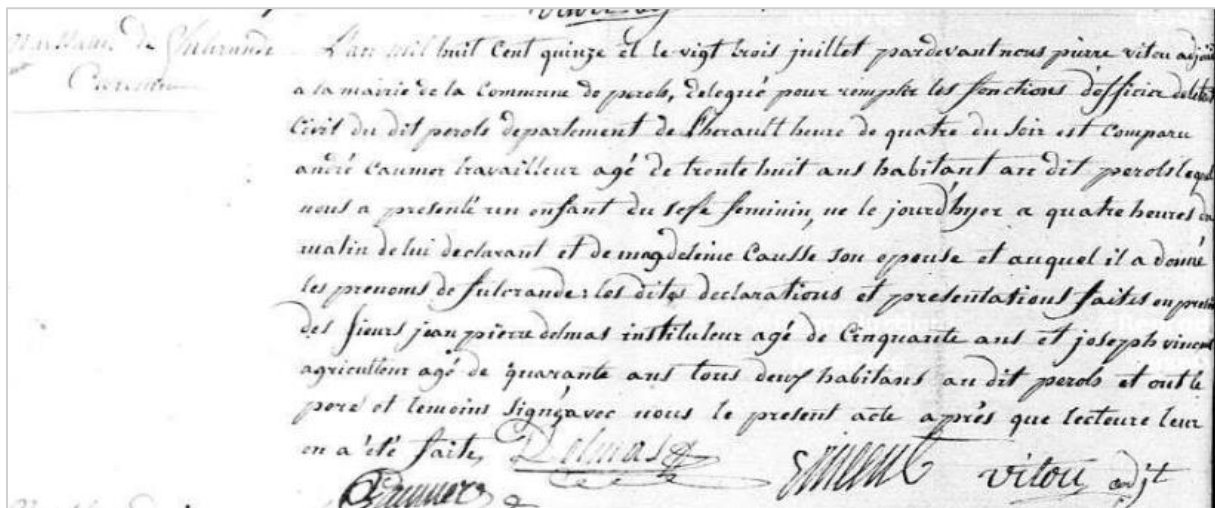 Naissance de Fulcrande
Caumer
L'an mil huit Cent quinze et le vigt trois juillet pardevant nous pierre vitou adjoint
a la mairie de la Commune de perols, delegué pour remplir les fonctions d'officier de letat
Civil du dit perols departement de l'herault heure de quatre du soir est Comparu
andré Caumer travailleur agé de trente huit ans habitant au dit perols lequel
nous a presenté un enfant du sexe feminin, ne le jourd'hyer a quatre heures du
matin de lui declarant et de magdeleine Causse son epouse et auquel il a donné
les prenoms de fulcrande. les dites declarations et presentations faites en presence
des sieurs jean pierre delmas instituteur agé de Cinquante ans et joseph vincent
agriculteur agé de quarante ans tous deux habitans au dit perols et ont le
pere et temoins signé avec nous le present acte après que lecteure leur
en a été faite, Delmas vincent vitou adjt
Caumer